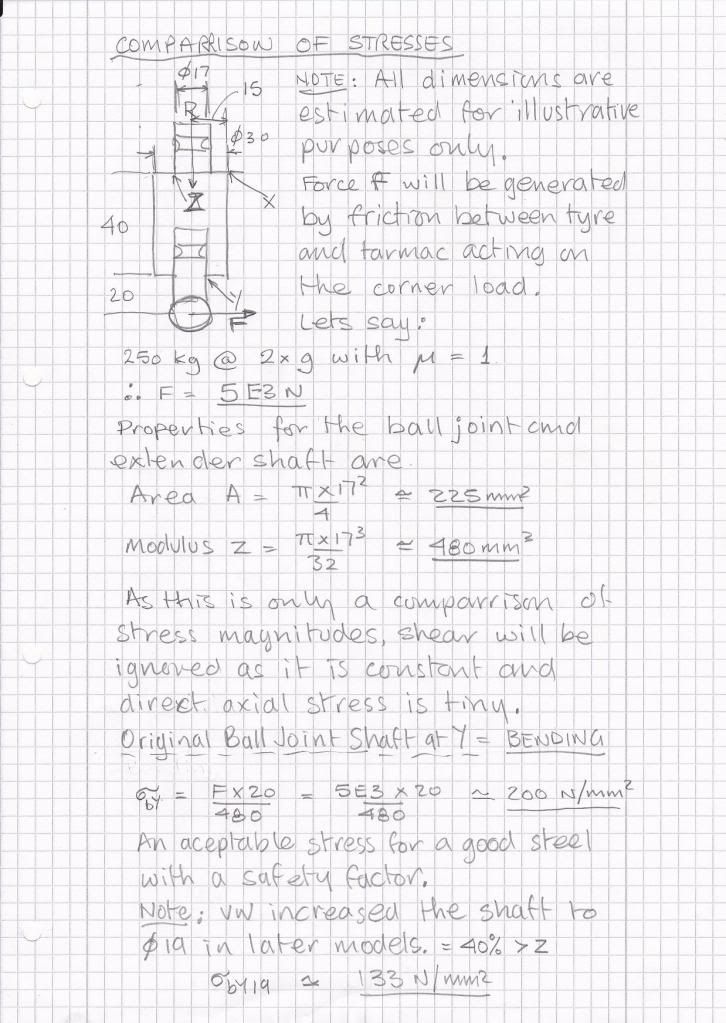 COMPARRISON OF STRESSES
φ17
15
R
φ30
Z
X
40
20
Y
F
NOTE: All dimensions are
estimated for illustrative
purposes only.
Force F will be generated
by friction between tyre
and tarmac acting on
the corner load.
Lets say:
250 kg @ 2×g with μ = 1
∴ F = 5E3 N
Properties for the ball joint and
extender shaft are
Area A = π×17²/4 ≃ 225 mm²
Modulus Z = π×17³/32 ≃ 480 mm³
As this is only a comparrison of
stress magnitudes, shear will be
ignored as it is constant and
direct axial stress is tiny.
Original Ball Joint Shaft at Y = BENDING
σbY = F×20/480 = 5E3×20/480 ≃ 200 N/mm²
An aceptable stress for a good steel
with a safety factor.
Note: VW increased the shaft to
φ19 in later models. = 40% >Z
σbY19 ≃ 133 N/mm²